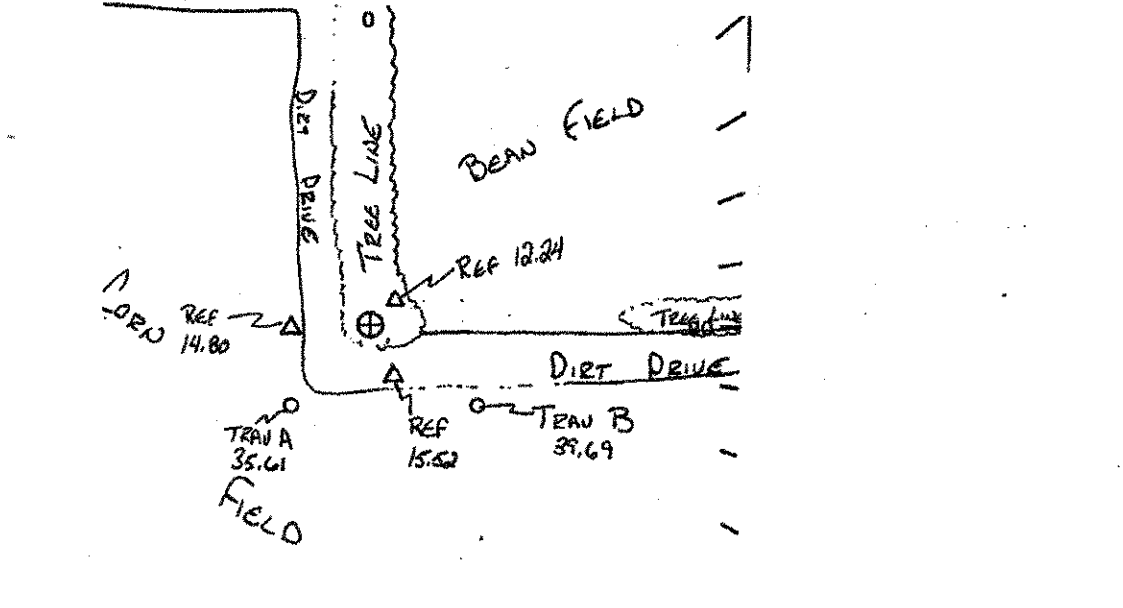 DIRT DRIVE
TREE LINE
BEAN FIELD
REF 12.24
REF
14.80
TREE LINE
DIRT DRIVE
TRAV A
35.61
REF
15.52
TRAV B
39.69
FIELD